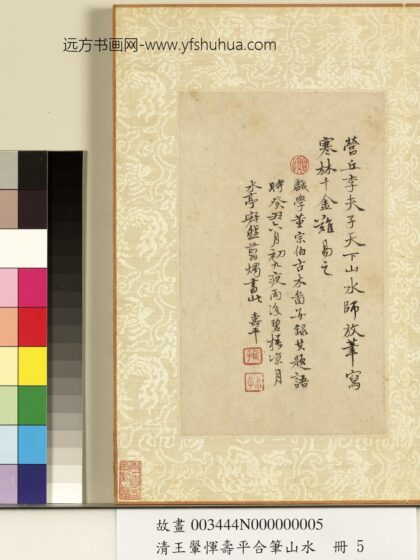 远方书画网-www.yfshuhua.com
營丘李夫子天下山水師放筆寫
寒林千金難易之
戲學董宗伯古木啚并錄其題語
時癸丑六月初九夜雨後碧梧涼月
水亭然翦燭書此 壽平
故畫 003444N000000005
清王翬惲壽平合筆山水 冊 5